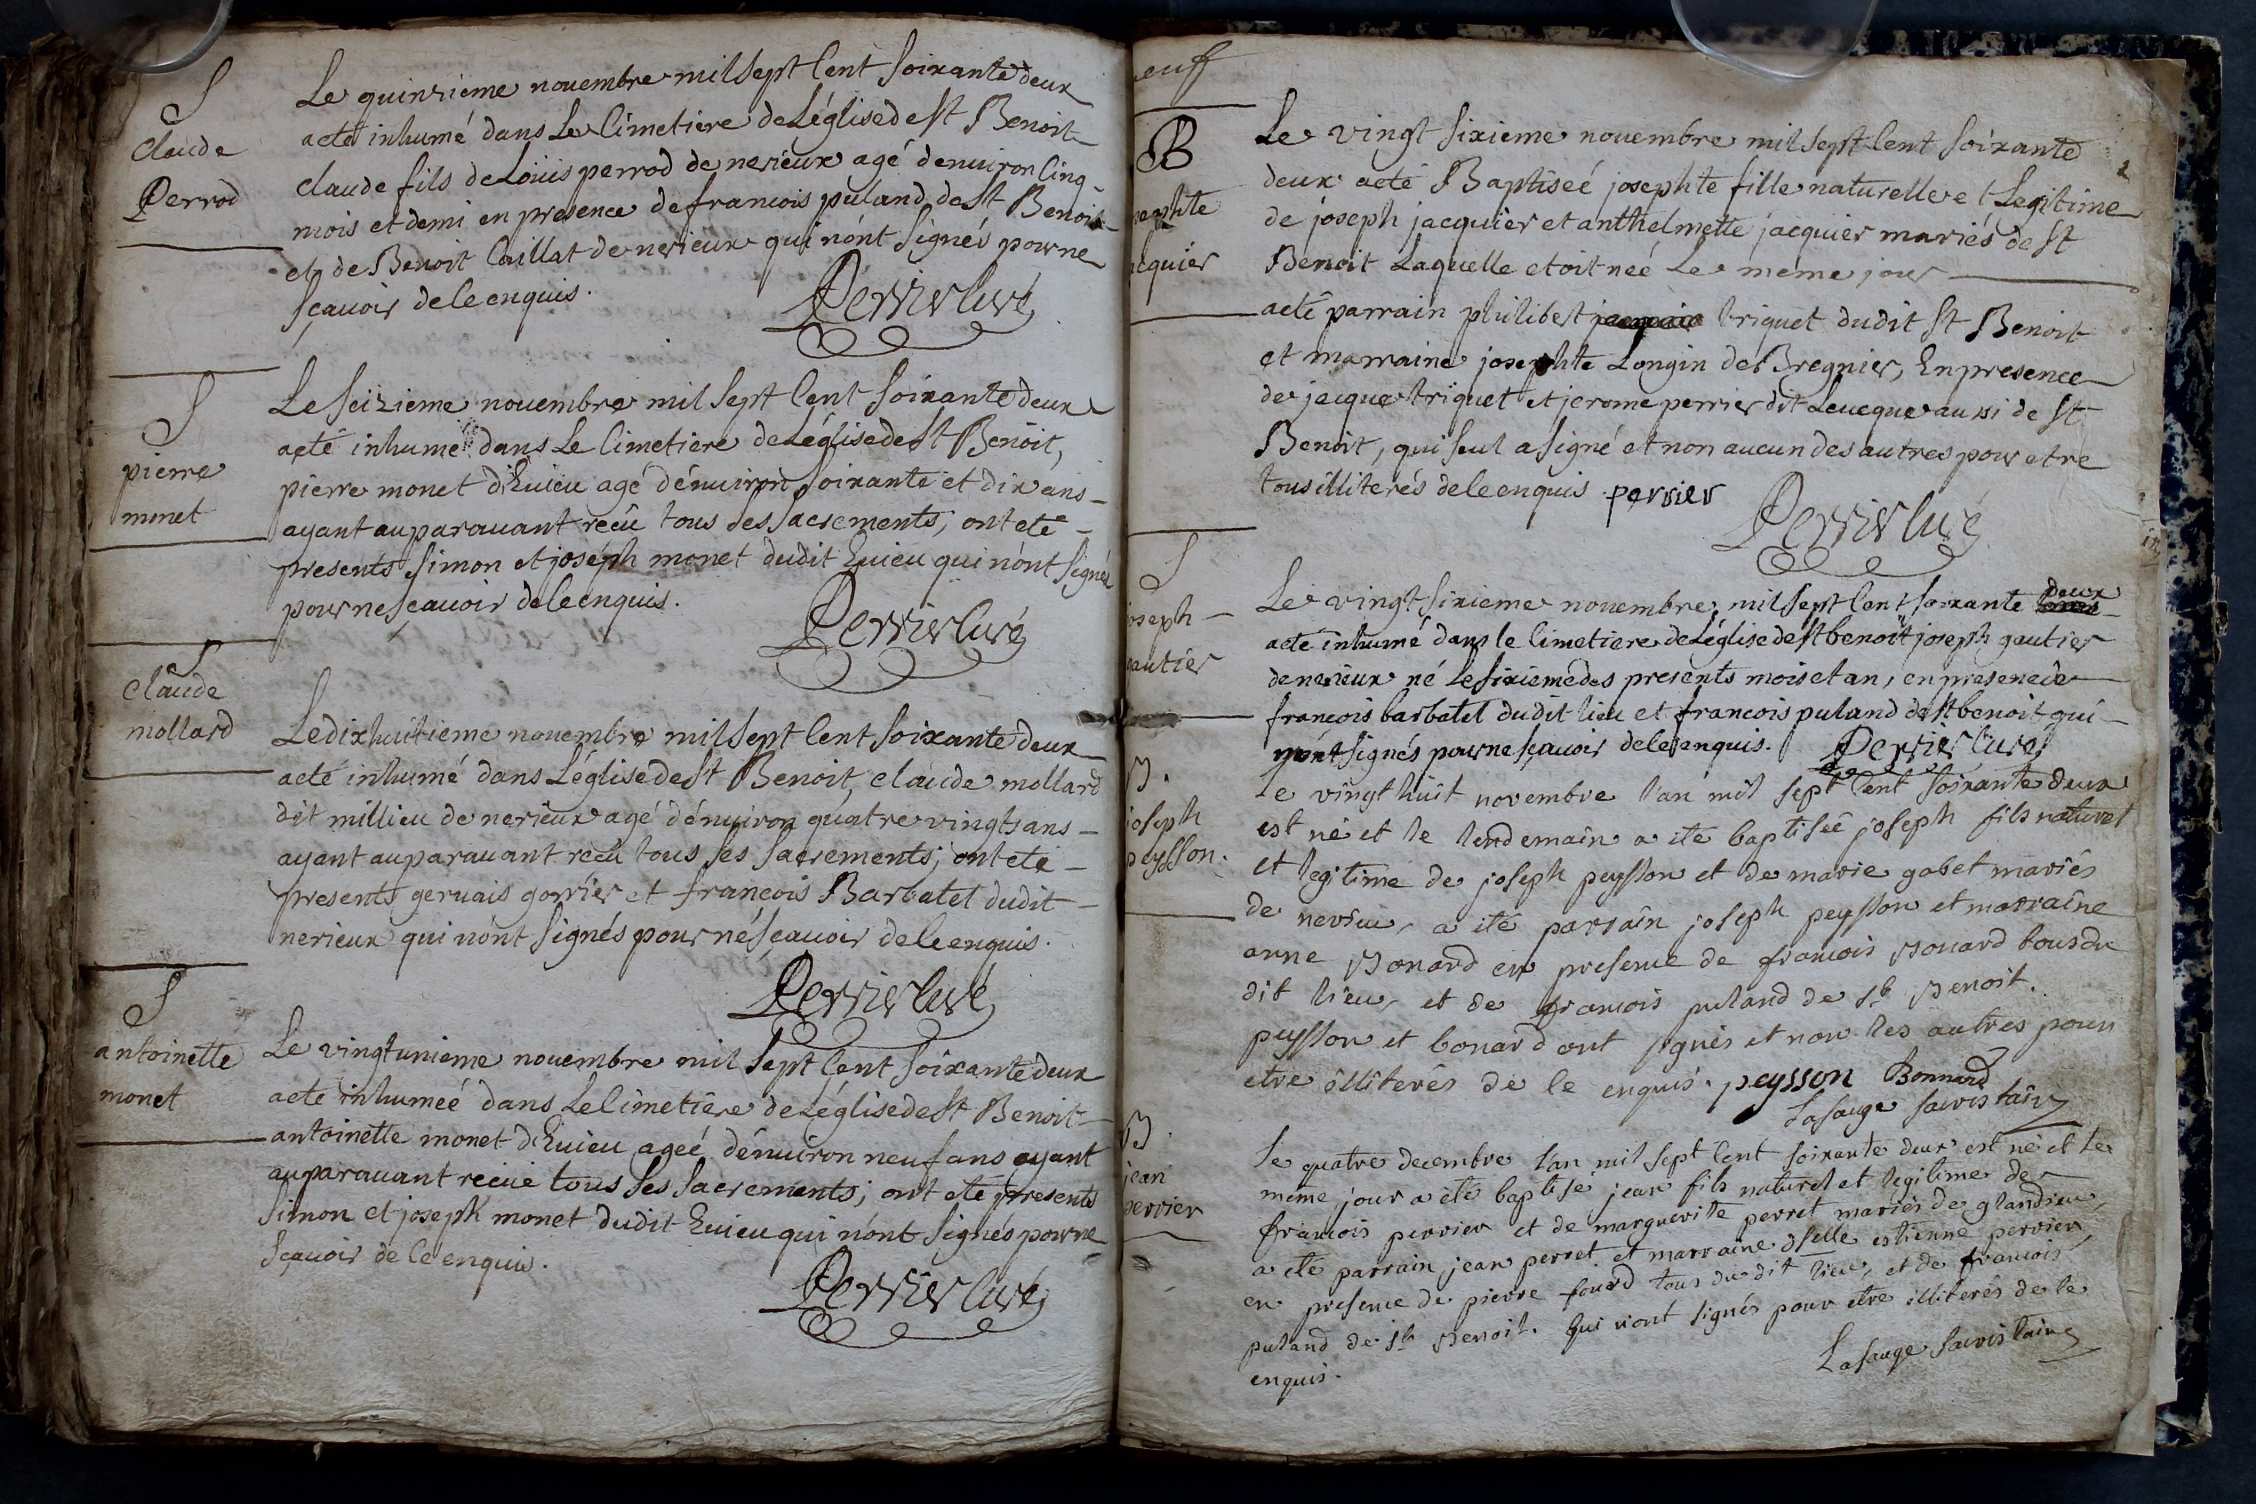 S
claude
Perrod
Le quinzieme novembre mil sept Cent soixante deux
a eté inhumé dans Le Cimetiere de L'église de st Benoit
claude fils de Loüis perrod de nerieux agé d'environ Cinq
mois et demi en presence de francois puland de st Benoit
et de Benoit Caillat de nerieux qui n'ont signés pour ne
sçavoir de ce enquis.
Perrier Curé
S
pierre
monet
Le seizieme novembre mil sept Cent soixante deux
a eté inhumé dans Le Cimetiere de L'église de st Benoit,
pierre monet d'Evieu agé d'environ soixante et dix ans
ayant auparavant reçû tous ses sacrements; ont eté
presents simon et joseph monet dudit Evieu qui n'ont signés
pour ne sçavoir de ce enquis.
Perrier Curé
S
claude
mollard
Le dixhuitieme novembre mil sept Cent soixante deux
a eté inhumé dans L'église de st Benoit, claude mollard
dit millieu de nerieux agé d'environ quatre vingts ans
ayant auparavant reçû tous ses sacrements; ont eté
presents gervais gorrier et francois Barbatel dudit
nerieux qui n'ont signés pour ne sçavoir de ce enquis.
Perrier Curé
S
antoinette
monet
Le vingtunieme novembre mil sept Cent soixante deux
a eté inhumeé dans Le Cimetiere de L'église de st Benoit
antoinette monet d'Evieu ageé d'environ neuf ans ayant
auparavant reçüe tous ses sacrements; ont eté presents
simon et joseph monet dudit Evieu qui n'ont signés pour ne
sçavoir de ce enquis.
Perrier Curé
euf
B
sephte
acquier
Le vingt sixieme novembre mil sept Cent soixante
deux a eté Baptiseé josephte fille naturelle et Legitime
de joseph jacquier et anthelmette jacquier mariés de st
Benoit Laquelle etoit neé Le meme jour
a eté parrain philibert triquet dudit st Benoit
et marraine josephte Longin de Bregnier, En presence
de jacque triquet et jerome perrier dit Levecque aussi de st
Benoit, qui seul a signé et non aucun des autres pour etre
tous illiterés de ce enquis. perrier
Perrier Curé
S
oseph
autier
Le vingt sixieme novembre mil sept Cent soixante deux
a eté inhumé dans le Cimetiere de L'église de st benoit joseph gautier
de nerieux né Le sixieme des presents mois et an, en presence de
francois barbatel dudit lieu et francois puland de st benoit qui
n'ont signés pour ne sçavoir de ce enquis. Perrier Curé
B.
joseph
peysson.
Le vingt huit novembre l'an mil sept Cent soixante deux
est né et le lendemain a eté baptiseé joseph fils naturel
et legitime de joseph peysson et de marie gabet mariés
de nerieu, a eté parrain joseph peysson et marraine
anne Bonard en presence de francois Bonard tous du
dit lieu, et de francois puland de st Benoit.
peysson et bonard ont signés et non les autres pour
etre illiterés de ce enquis. peysson Bonnard
Lasauge sacristain
B
jean
perrier
Le quatre decembre l'an mil sept Cent soixante deux est né et le
meme jour a eté baptisé jean fils naturel et legitime de
francois perrier et de marguerite perret mariés de glandieu,
a eté parrain jean perret et marraine dselle estienne perrier
en presence de pierre fourd tous du dit lieu, et de francois
puland de st Benoit. Qui n'ont signés pour etre illiterés de ce
enquis.
Lasauge sacristain